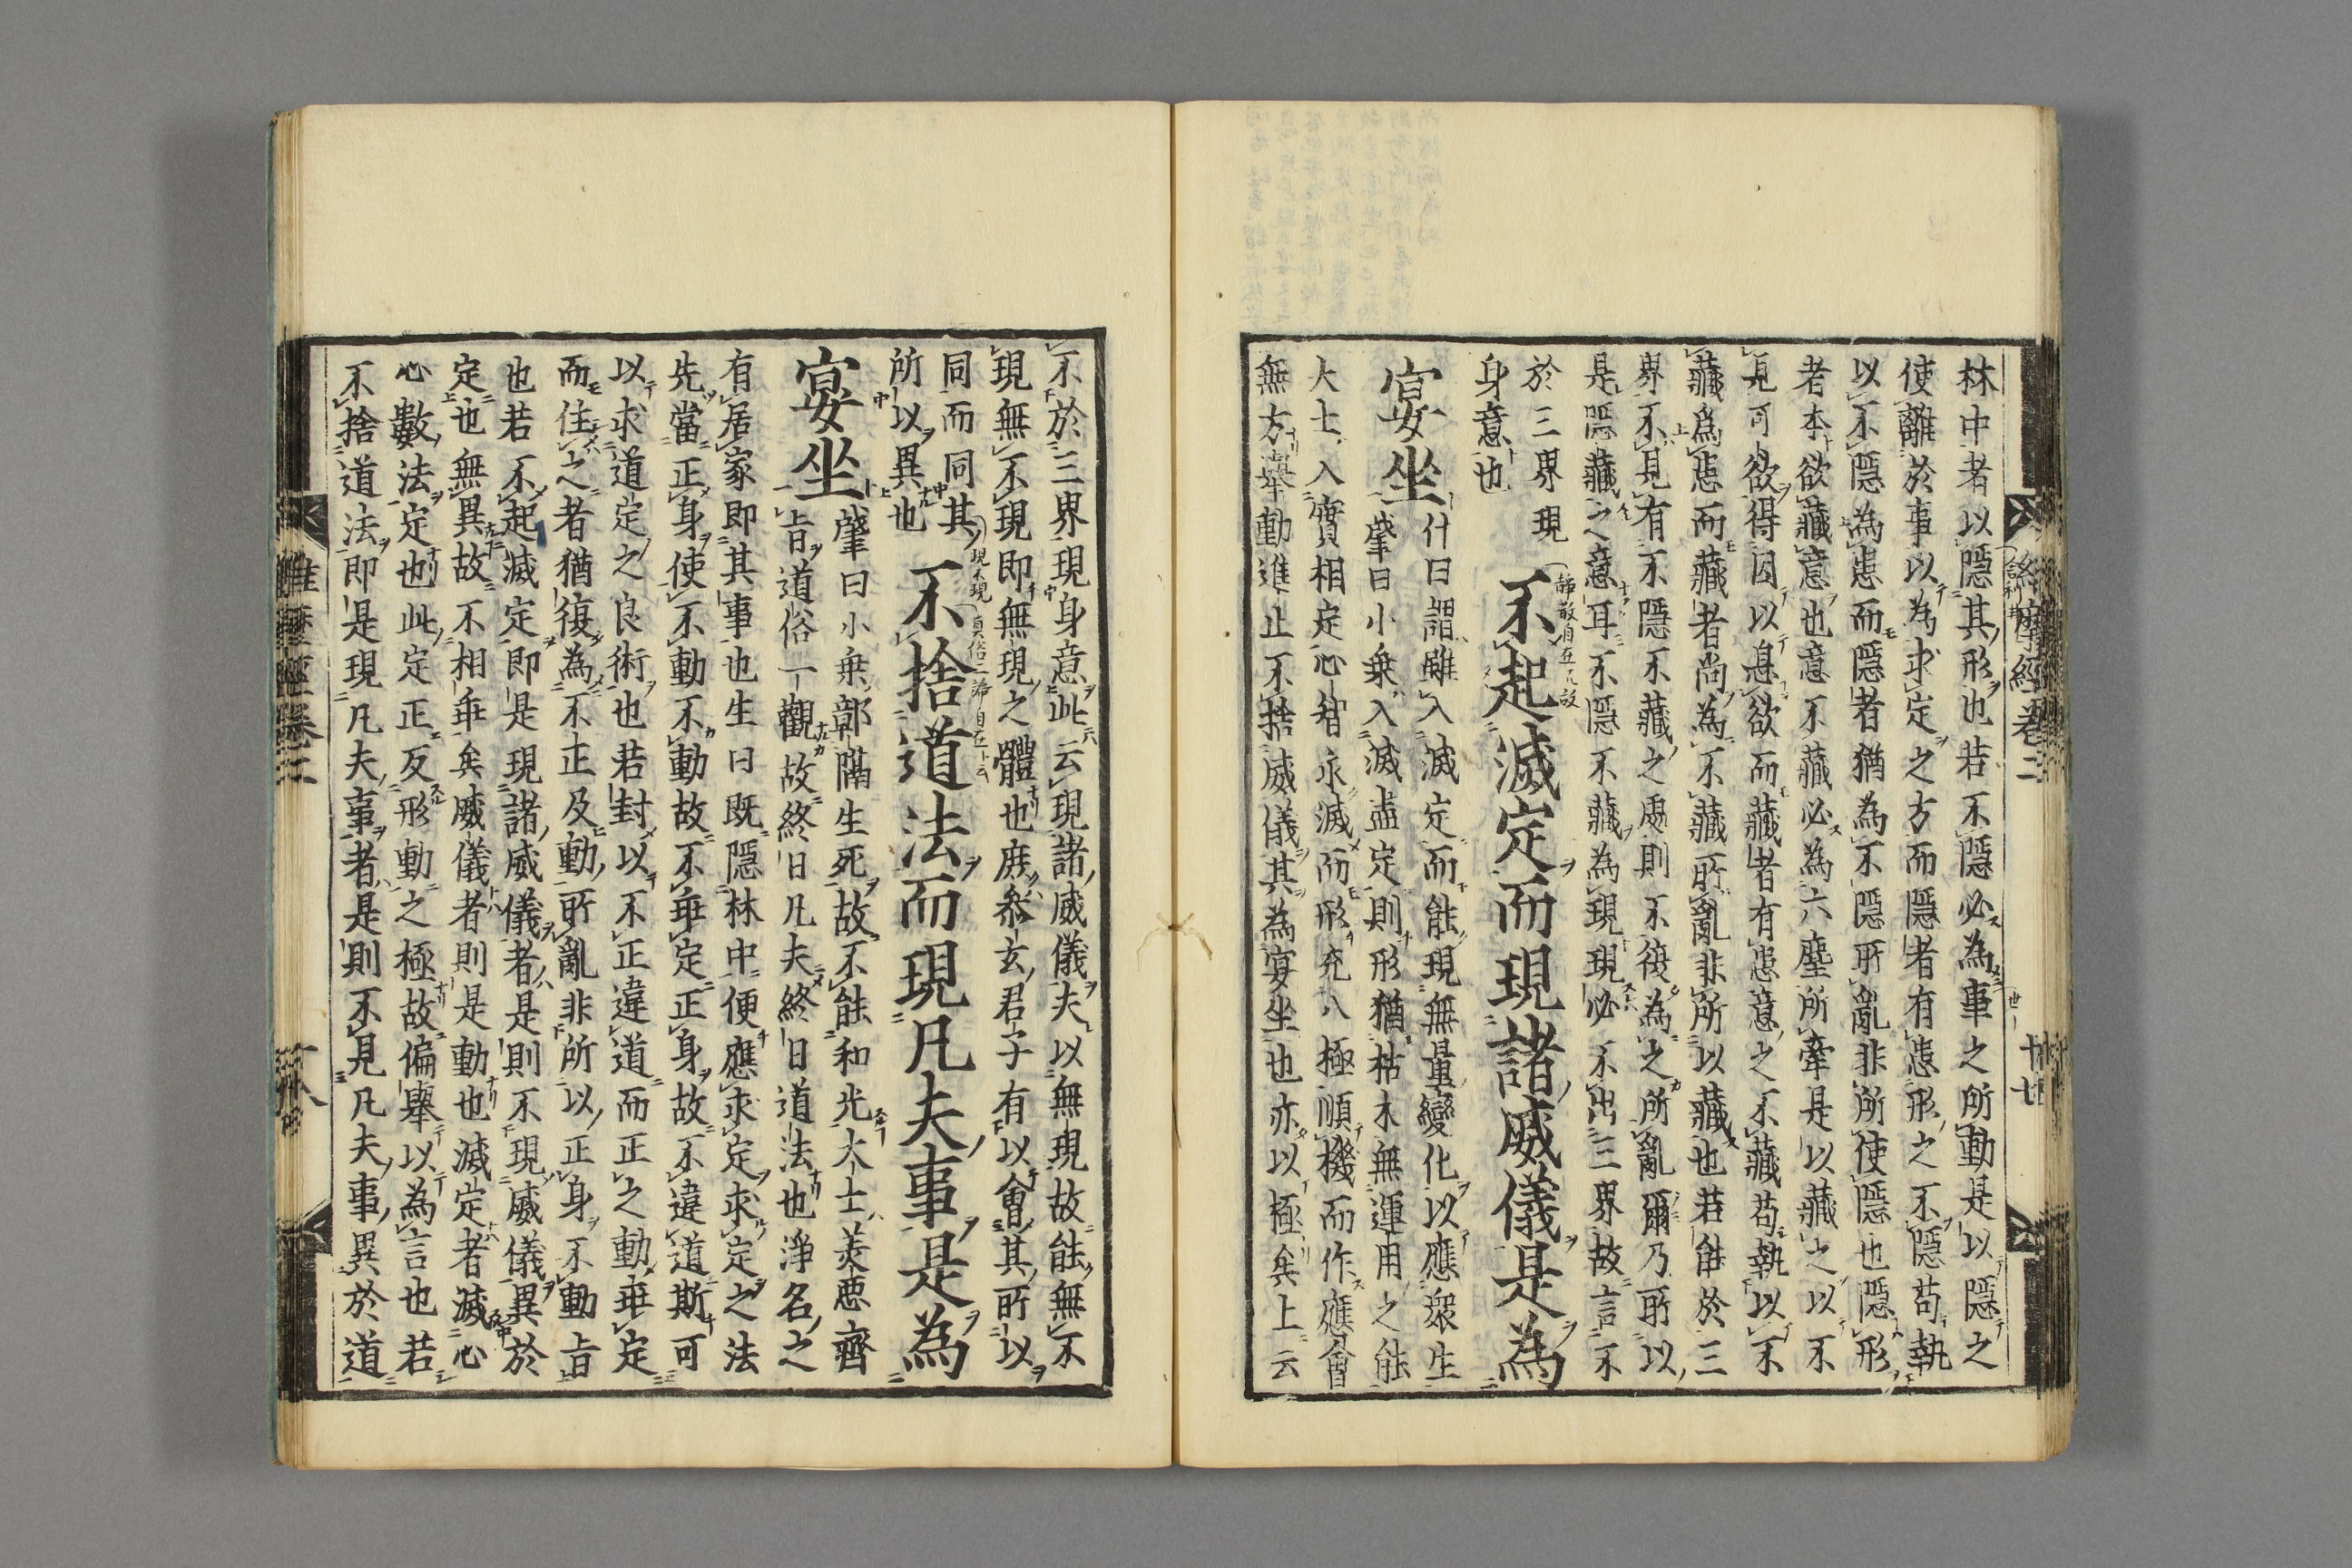 林中者以隱其形也若不隱必為事之所動是以隱之
使離於事以為求定之方而隱者有患形之不隱苟執
以不隱為患而隱者猶為不隱所亂非所使隱也隱形
者本欲藏意也意不藏必為六塵所牽是以藏之以不
見可欲得因以息欲而藏者有患意之不藏苟執以不
藏為患而藏者尚為不藏所亂非所以藏也若能於三
界不見有不隱不藏之處則不復為之所亂爾乃所以
是隱藏之意耳不隱不藏為現現必不出三界故言不
於三界現
身意也
不起滅定而現諸威儀是為
宴坐
什曰謂雖入滅定而能現無量變化以應眾生
肇曰小乘入滅盡定則形猶枯木無運用之能
大士入實相定心智永滅而形充八極順機而作應會
無方舉動進止不捨威儀其為宴坐也亦以極矣上云
不於三界現身意此云現諸威儀夫以無現故能無不
現無不現即無現之體也庶參玄君子有以會其所以
同而同其
所以異也
不捨道法而現凡夫事是為
宴坐
肇曰小乘鄣隔生死故不能和光大士美惡齊
旨道俗一觀故終日凡夫終日道法也淨名之
有居家即其事也生曰既隱林中便應求定求定之法
先當正身使不動不動故不乖定正身故不違道斯可
以求道定之良術也若封以不正違道而正之動乖定
而住之者猶復為不正及動所亂非所以正身不動旨
也若不起滅定即是現諸威儀者是則不現威儀異於
定也無異故不相乖矣威儀者則是動也滅定者滅心
心數法定也此定正反形動之極故偏舉以為言也若
不捨道法即是現凡夫事者是則不見凡夫事異於道
維摩經卷二
十七